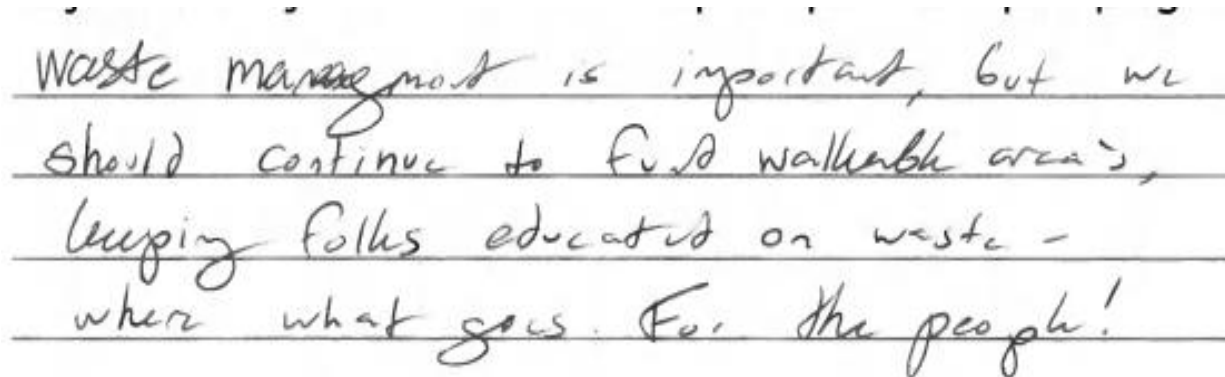 Waste managment is important, but we
should continue to fund walkable area's,
keeping folks educated on waste -
where what goes. For the people!